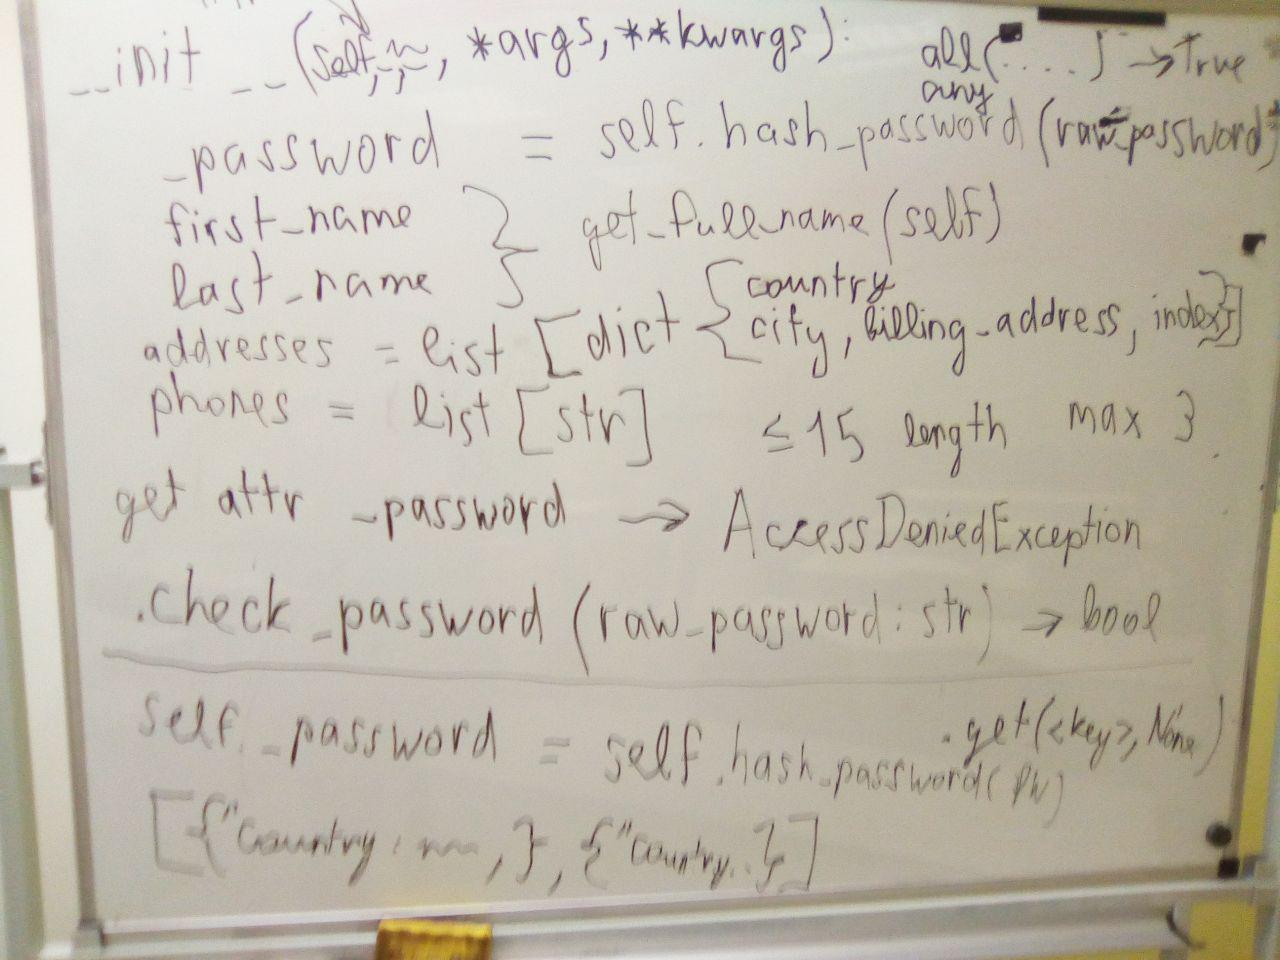 __init __ (self, *args, **kwargs):
all(.....) → True
any
_password = self.hash_password(raw_password)
first_name } get_full_name(self)
last_name
addresses = list [dict { country
city, billing_address, index}]
phones = list [str] ≤15 length max 3
get attr _password → AccessDeniedException
.check_password (raw_password: str) → bool
self._password = self.hash_password(pw)
.get(<key>, None)
[{"country: , }, {"country..}]